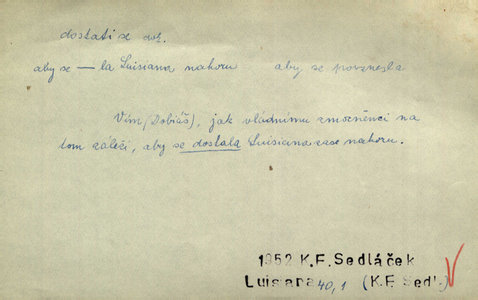 dostati se dok.
aby se — la Luisiana nahoru aby se povznesla
Vím (Dobiáš), jak vládnímu zmocněnci na
tom záleží, aby se dostala Luisiana zase nahoru.
1952 K.F. Sedláček
Luisiana 40,1 (K.F. Sedl.)